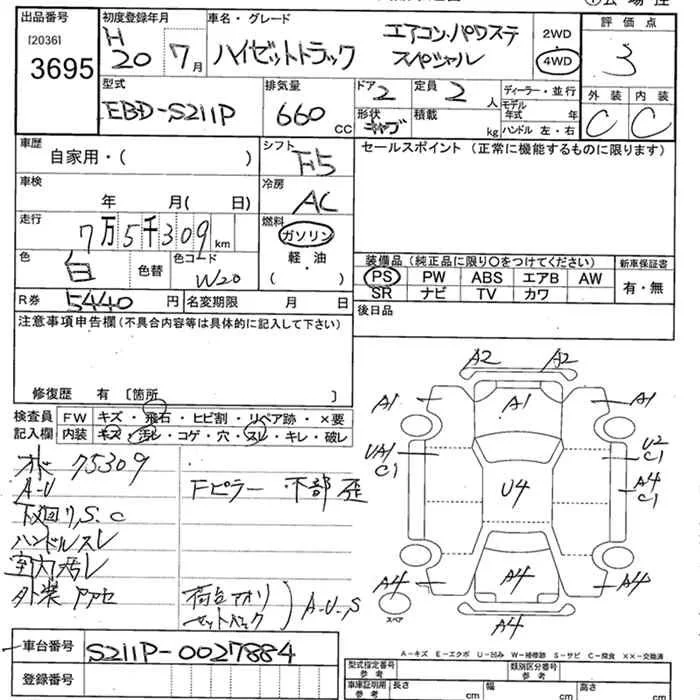 出品番号 初度登録年月 車名・グレード 評価点
[2036] 3695
H20 7月 ハイゼットトラック エアコン・パワステ スペシャル 2WD 4WD 3
型式 排気量 ドア 定員 ディーラー・並行 外装 内装
EBD-S211P 660 CC 2 2人 モデル年式 年 C C
形状 キャブ 積載 kg ハンドル 左・右
車歴 自家用・( ) シフト F5 セールスポイント (正常に機能するものに限ります)
車検 年 月( 日) 冷房 AC
走行 7万5千309 km 燃料 ガソリン
色 白 色替 色コード W20 軽・油 ( ・ )
装備品 (純正品に限り○をつけてください) 新車保証書
PS PW ABS エアB AW 有・無
SR ナビ TV カワ
R券 5440円 名変期限 月 日 後日品
注意事項申告欄 (不具合内容等は具体的に記入して下さい)
修復歴 有 〔箇所 〕
検査員 FW キズ・飛石・ヒビ割・リペア跡・×要
記入欄 内装 キズ・汚レ・コゲ・穴・スレ・キレ・破レ
75309
A-U Fピラー 下部 歪
下回り S.C
ハンドルスレ
室内汚レ
外装 荷台アオリ A-U-S
A2 A2
A1 A1 A1
UA1 C1 U2 C1
U4 A4 C1
A4 A4 A4
A4
スペア
A-キズ E-エクボ U-凹み W-補修跡 S-サビ C-腐食 ××-交換済
車台番号 S211P-0027884
登録番号
型式指定番号 参考 類別区分番号 参考
車庫証明用 参考 長さ cm 幅 cm 高さ cm